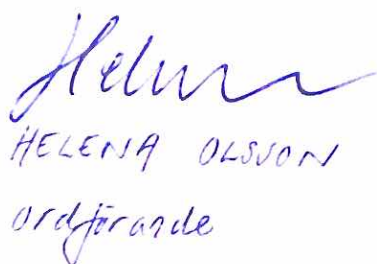 Helena
HELENA OLSSON
ordförande